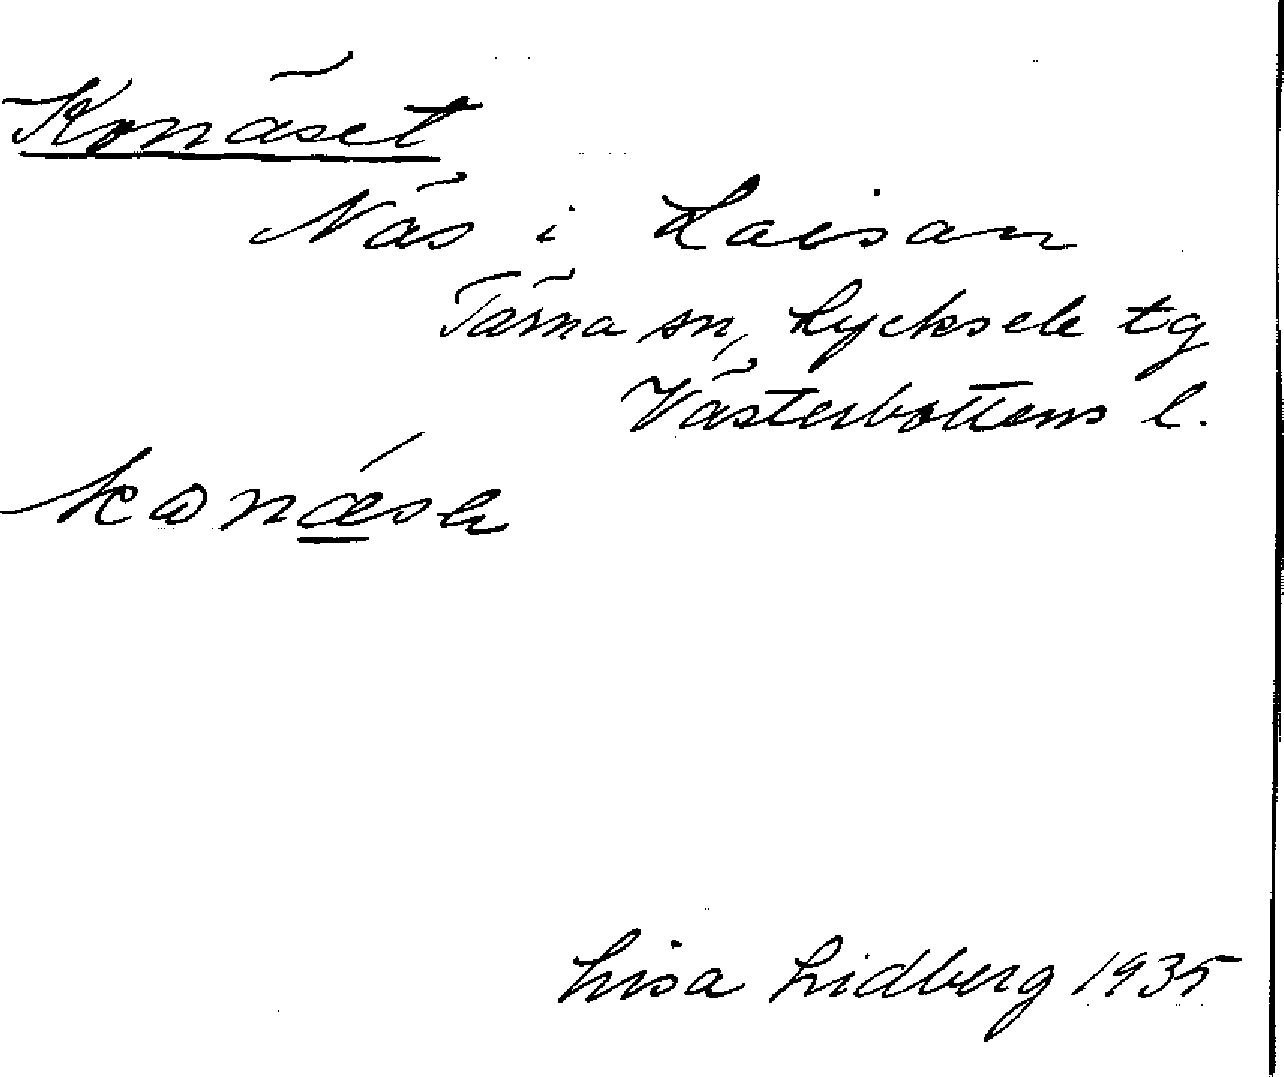 Konäset
Näs i Laisan
Tärna sn, Lycksele tg
Västerbottens l.
Lisa Lidberg 1935